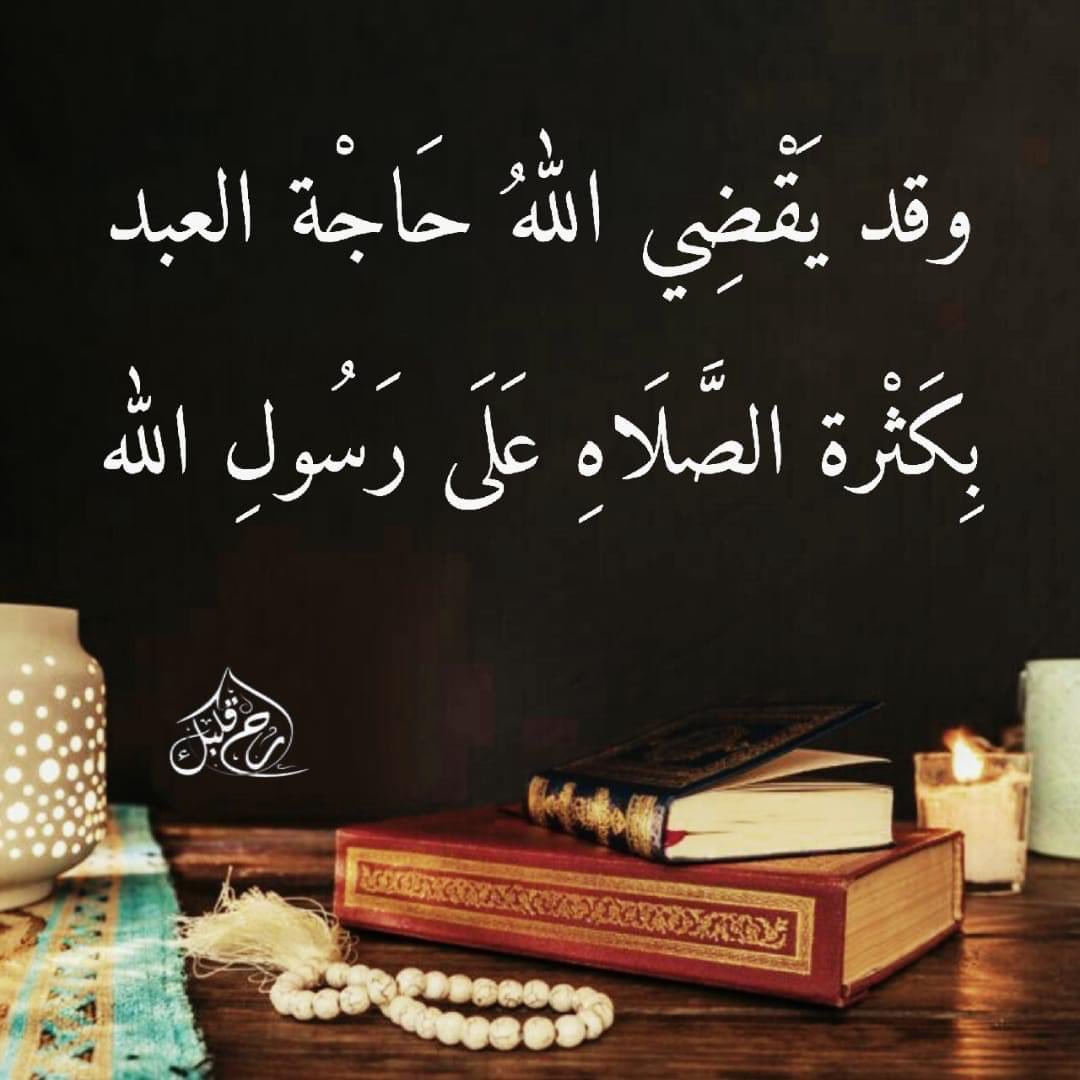 وقد يَقْضِي اللهُ حَاجْة العبد
بِكَثْرة الصَّلَاهِ عَلَى رَسُولِ الله
ارحم قلبك